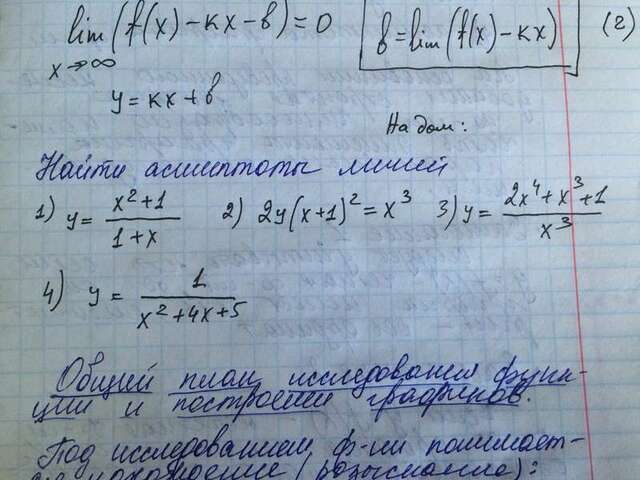 lim (f(x) - кx - в) = 0
x → ∞
в = lim (f(x) - кx)
(2)
y = кx + в
На дом:
Найти асимптоты линий
1) y = (x² + 1)/(1 + x) 2) 2y(x + 1)² = x³ 3) y = (2x⁴ + x³ + 1)/x³
4) y = 1/(x² + 4x + 5)
Общий план исследования функ-
ции и построения графиков.
Под исследованием ф-ии понимает-
ся нахождение (розыскание):